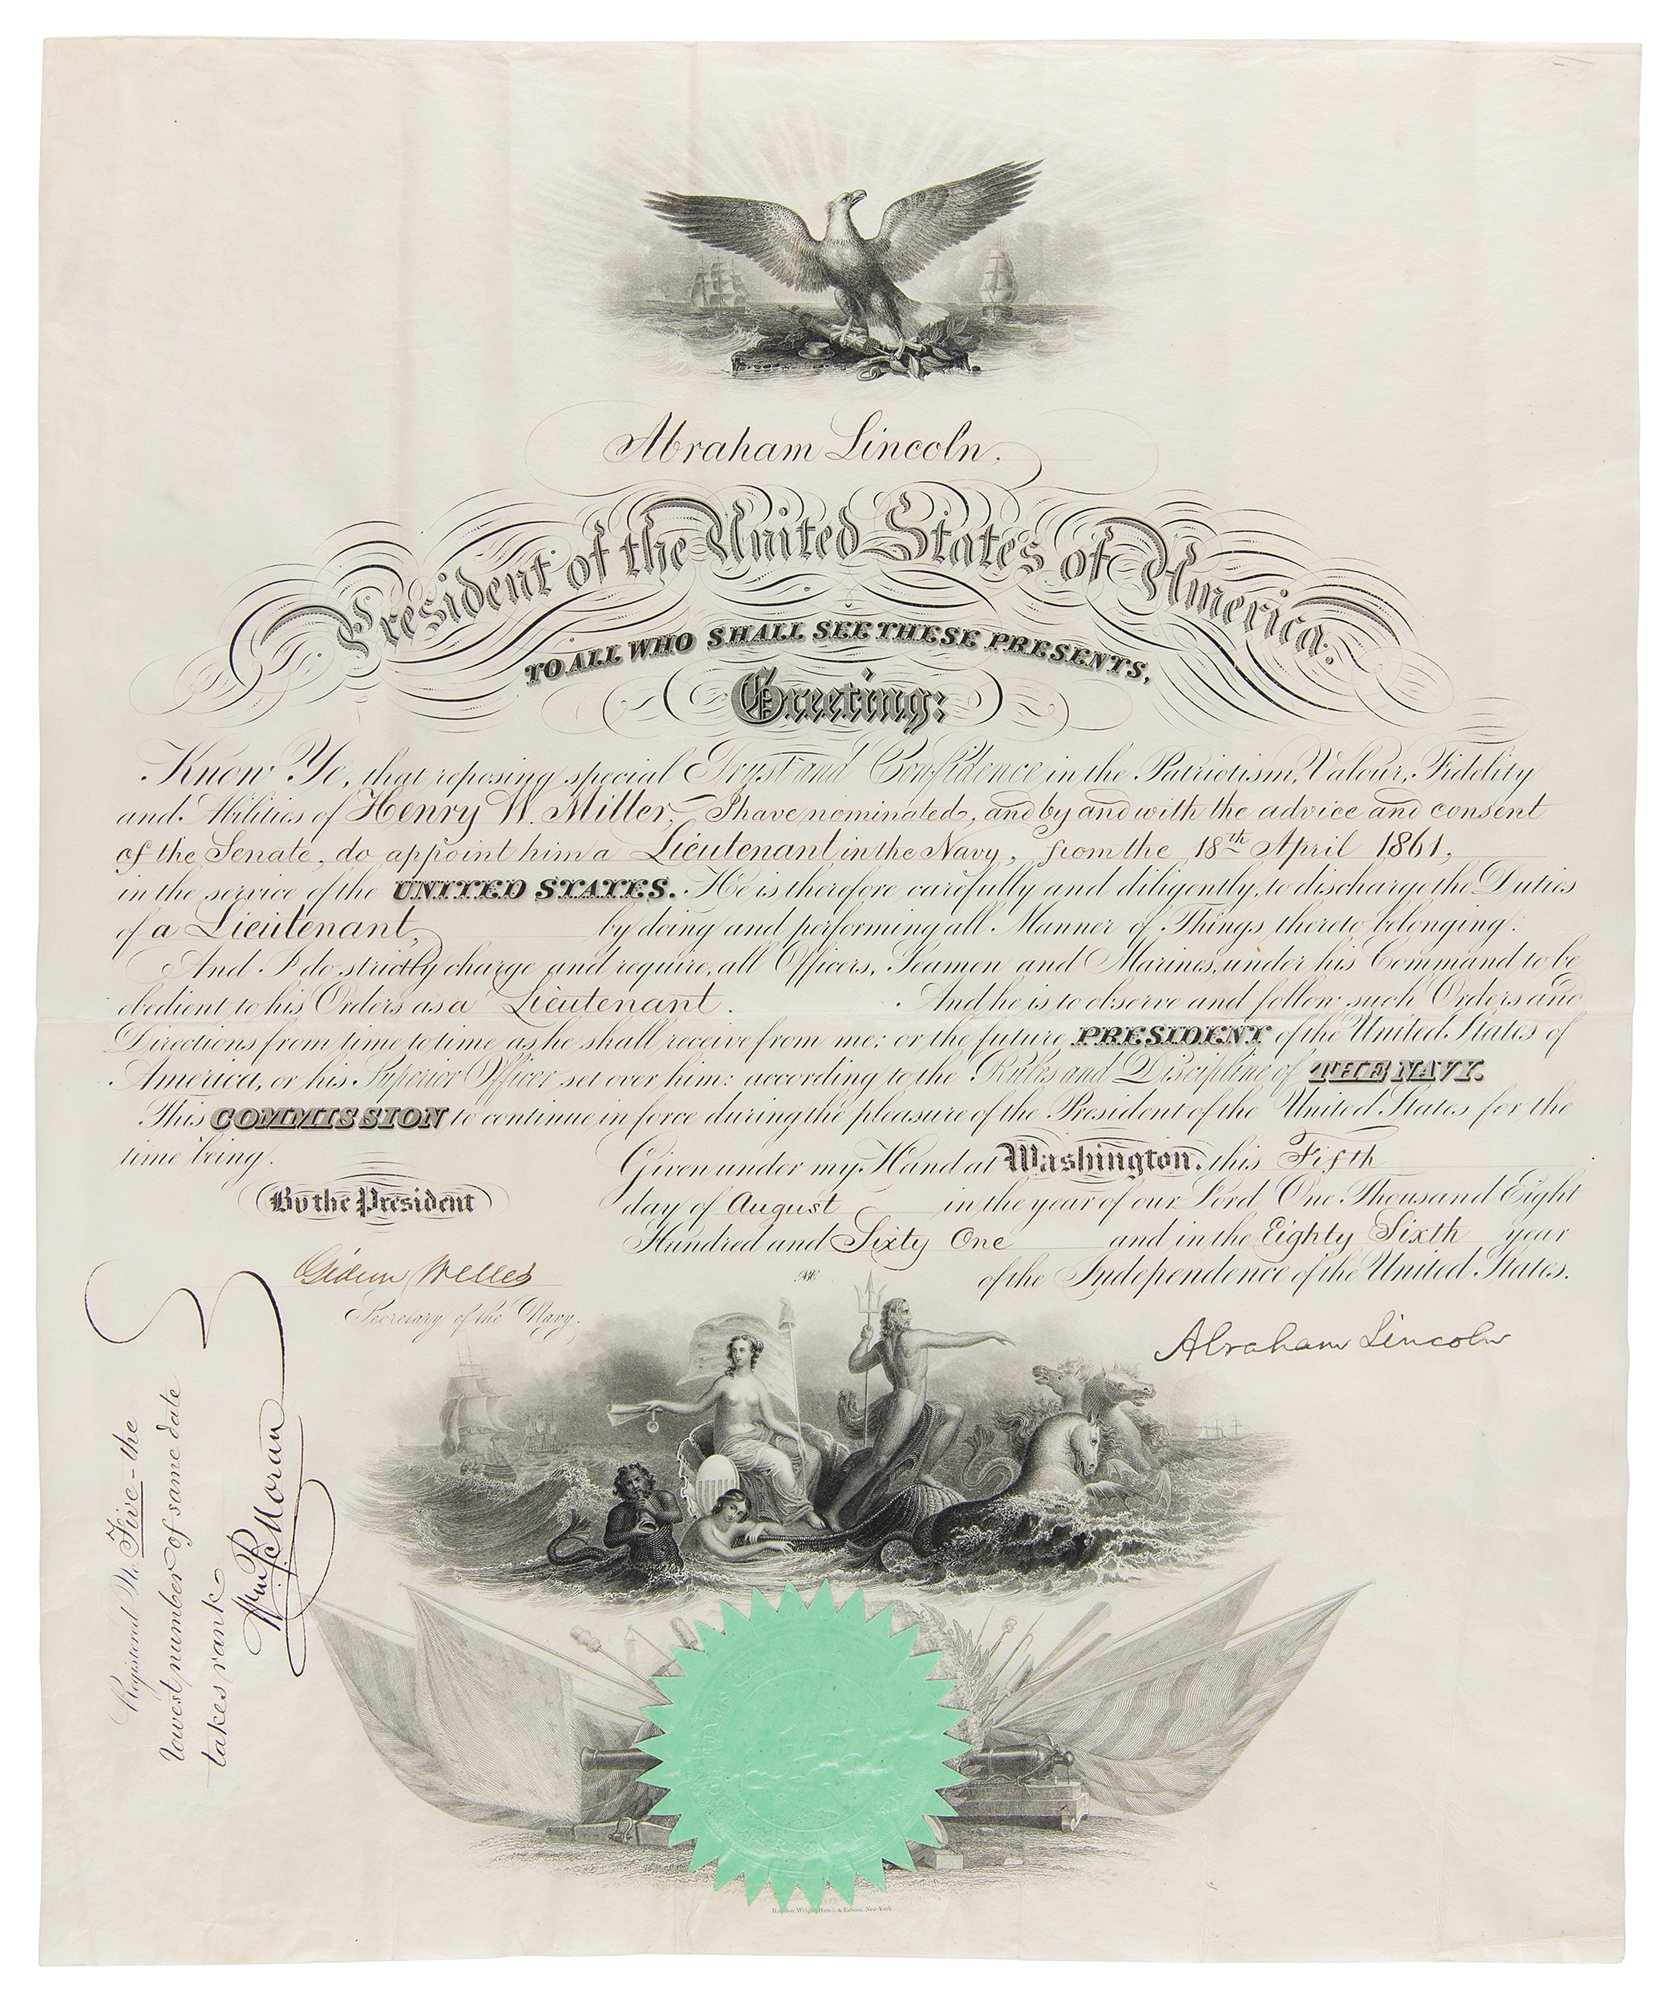 Abraham Lincoln,
President of the United States of America.
TO ALL WHO SHALL SEE THESE PRESENTS,
Greeting:
Know Ye, that reposing special Trust and Confidence in the Patriotism, Valour, Fidelity
and Abilities of Henry W. Miller, I have nominated, and by and with the advice and consent
of the Senate, do appoint him a Lieutenant in the Navy, from the 18th April 1861,
in the service of the UNITED STATES. He is therefore carefully and diligently, to discharge the Duties
of a Lieutenant, by doing and performing all Manner of Things thereto belonging.
And I do strictly charge and require, all Officers, Seamen and Marines, under his Command to be
obedient to his Orders as a Lieutenant. And he is to observe and follow such Orders and
Directions from time to time as he shall receive from me; or the future PRESIDENT of the United States of
America, or his Superior Officer set over him: according to the Rules and Discipline of THE NAVY.
This COMMISSION to continue in force during the pleasure of the President of the United States for the
time being.
Given under my Hand at Washington, this Fifth
day of August in the year of our Lord, One Thousand Eight
Hundred and Sixty One and in the Eighty Sixth year
of the Independence of the United States.
By the President
Gideon Welles
Secretary of the Navy.
Abraham Lincoln
Registered No. Five - the
lowest number of same date
takes rank
Wm. P. Moran
Rawdon, Wright, Hatch & Edson, New-York.